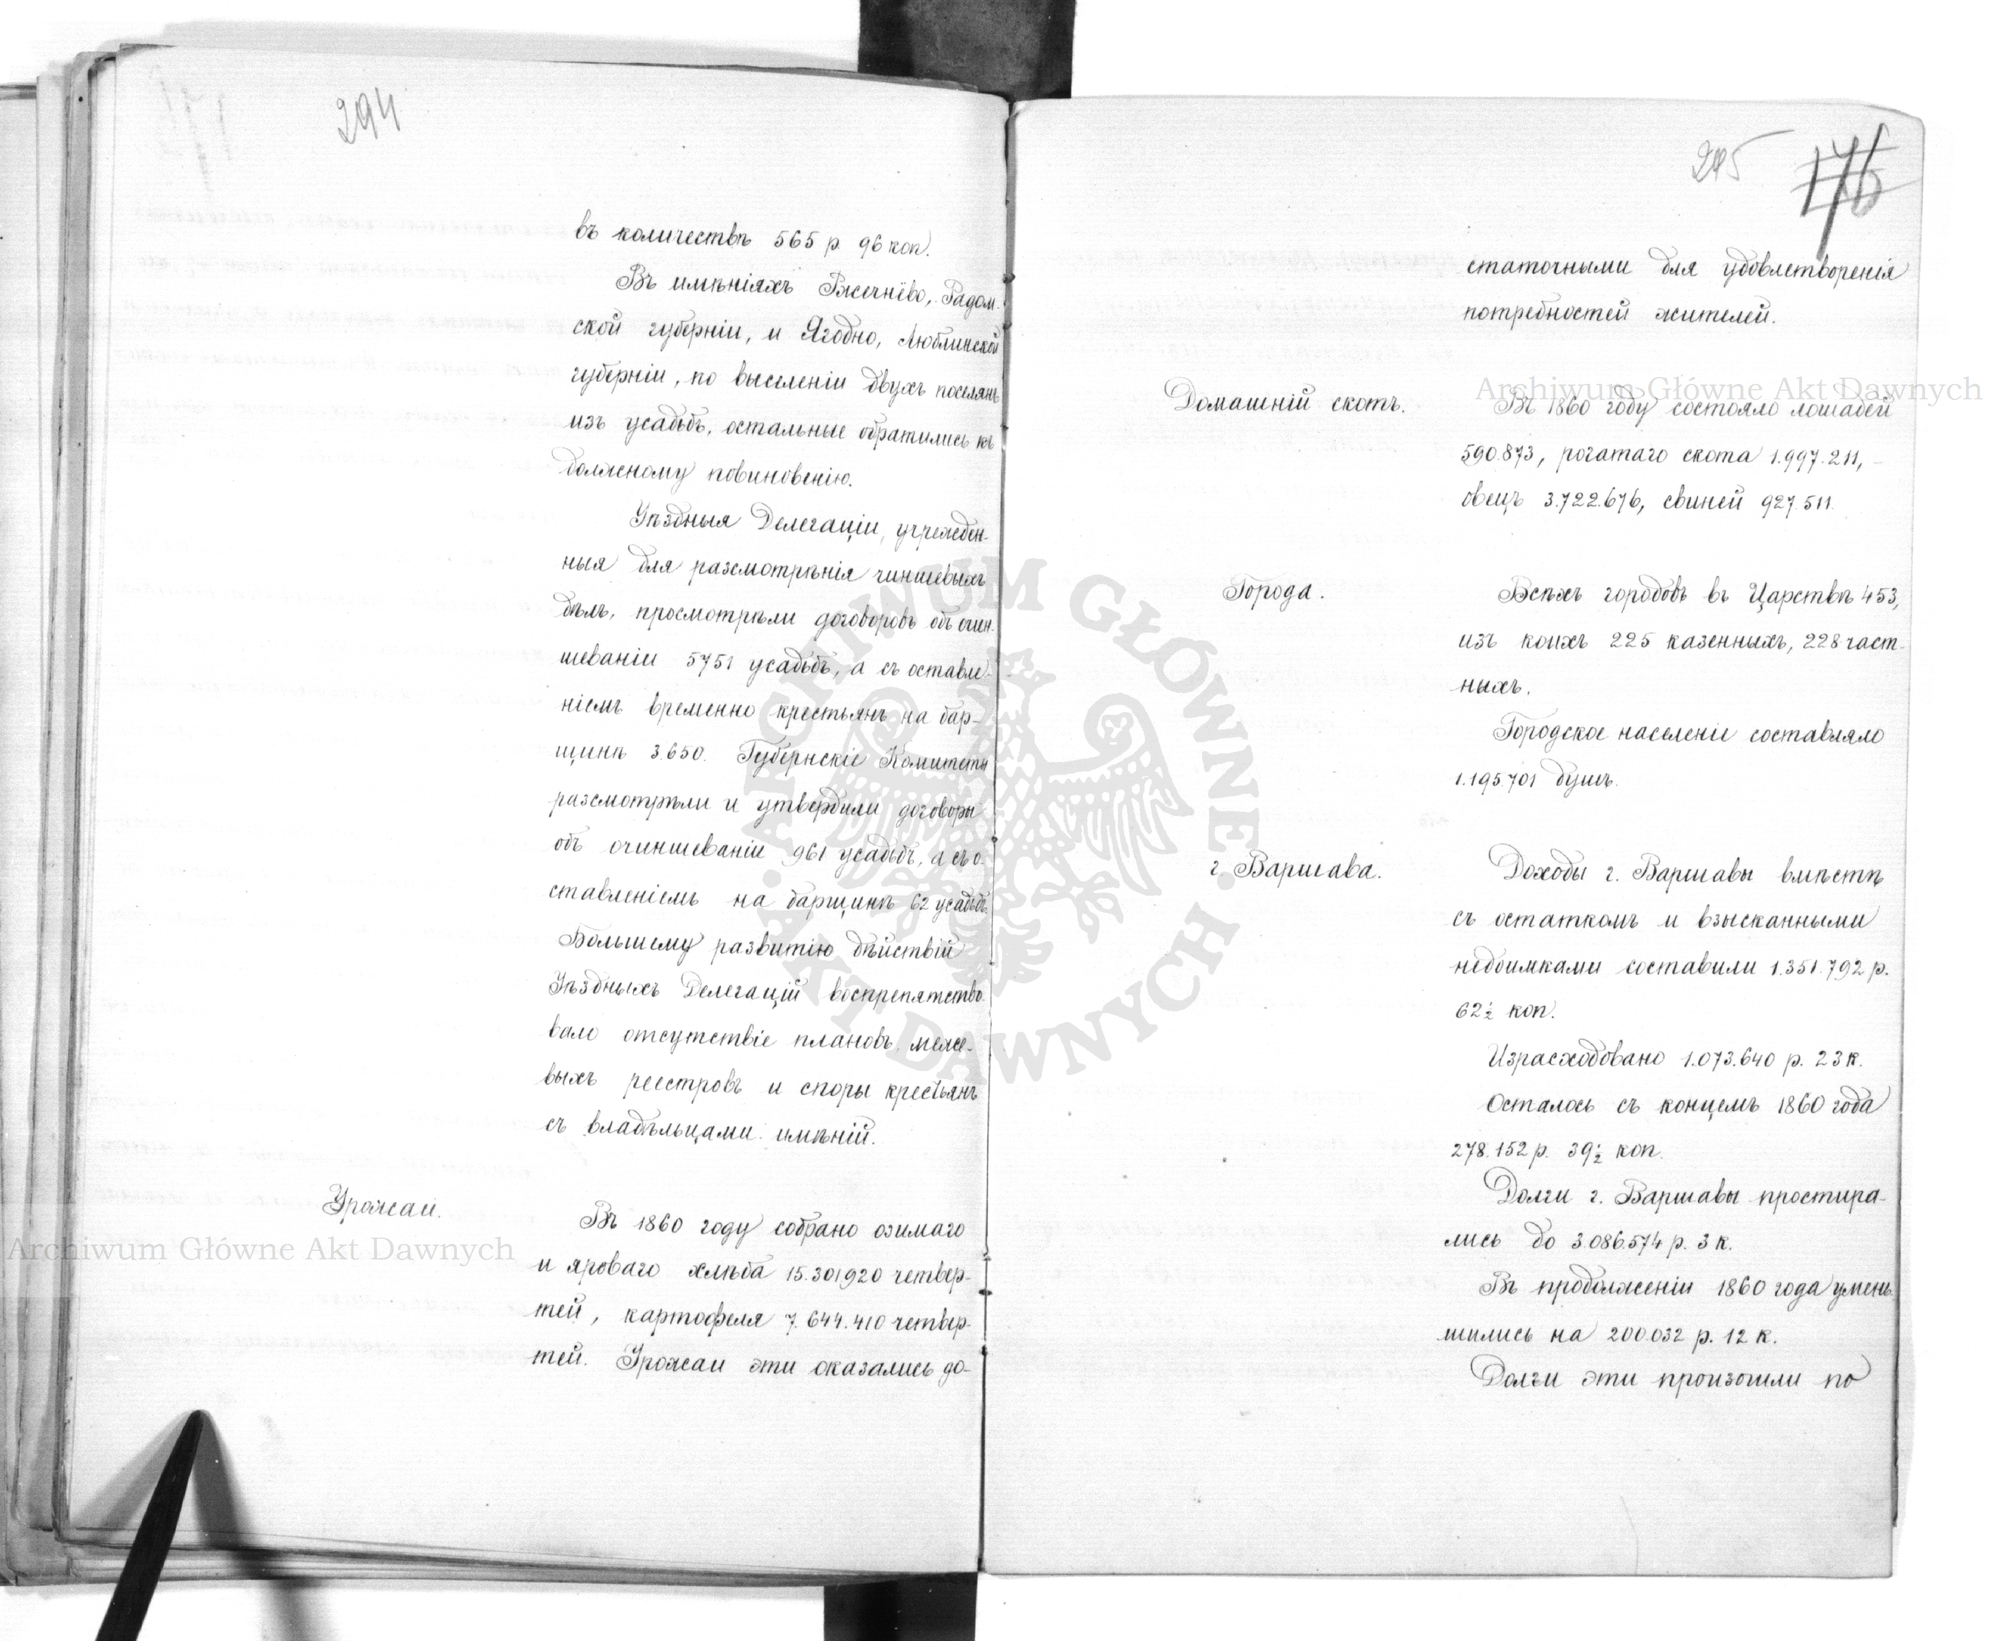 294
въ количествѣ 565 р. 96 коп.
Въ имѣніяхъ Ржечнёво, Радом-
ской губерніи, и Ягодно, Люблинской
губерніи, по выселеніи двухъ поселянъ
изъ усадьбъ, остальные обратились къ
должному повиновенію.
Уѣздныя Делегаціи, учрежден-
ныя для разсмотрѣнія чиншевыхъ
дѣлъ, просмотрѣли договоровъ объ очин-
шеваніи 5751 усадьбъ, а съ оставле-
ніемъ временно крестьянъ на бар-
щинѣ 3.650. Губернскіе Комитеты
разсмотрѣли и утвердили договоры
объ очиншеваніи 961 усадьбъ, а съ о-
ставленіемъ на барщинѣ 62 усадьбъ.
Большему развитію дѣйствій
Уѣздныхъ Делегацій воспрепятство-
вало отсутствіе плановъ, меже-
выхъ реестровъ и споры крестьянъ
съ владѣльцами имѣній.
Урожаи.
Въ 1860 году собрано озимаго
и яроваго хлѣба 15.301.920 четвер-
тей, картофеля 7.644.410 четвер-
тей. Урожаи эти оказались до-
295 176
статочными для удовлетворенія
потребностей жителей.
Домашній скотъ.
Въ 1860 году состояло лошадей
590.873, рогатаго скота 1.997.211,
овецъ 3.722.676, свиней 927.511.
Города.
Всѣхъ городовъ въ Царствѣ 453,
изъ коихъ 225 казенныхъ, 228 част-
ныхъ.
Городское населеніе составляло
1.195.701 душъ.
г. Варшава.
Доходы г. Варшавы вмѣстѣ
съ остаткомъ и взысканными
недоимками составили 1.351.792 р.
62½ коп.
Израсходовано 1.073.640 р. 23 к.
Осталось съ концемъ 1860 года
278.152 р. 39½ коп.
Долги г. Варшавы простира-
лись до 3.086.574 р. 3 к.
Въ продолженіи 1860 года умень-
шились на 200.032 р. 12 к.
Долги эти произошли по
Archiwum Główne Akt Dawnych
Archiwum Główne Akt Dawnych
ARCHIWUM GŁÓWNE AKT DAWNYCH